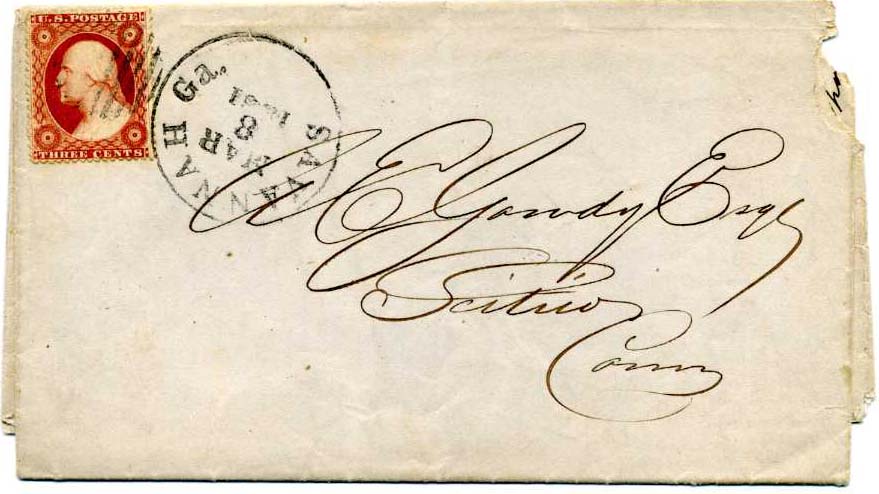 U.S. POSTAGE
THREE CENTS
SAVANNAH Ga.
MAR
8
1861
A E Gowdy Esqr
Scitico
Conn